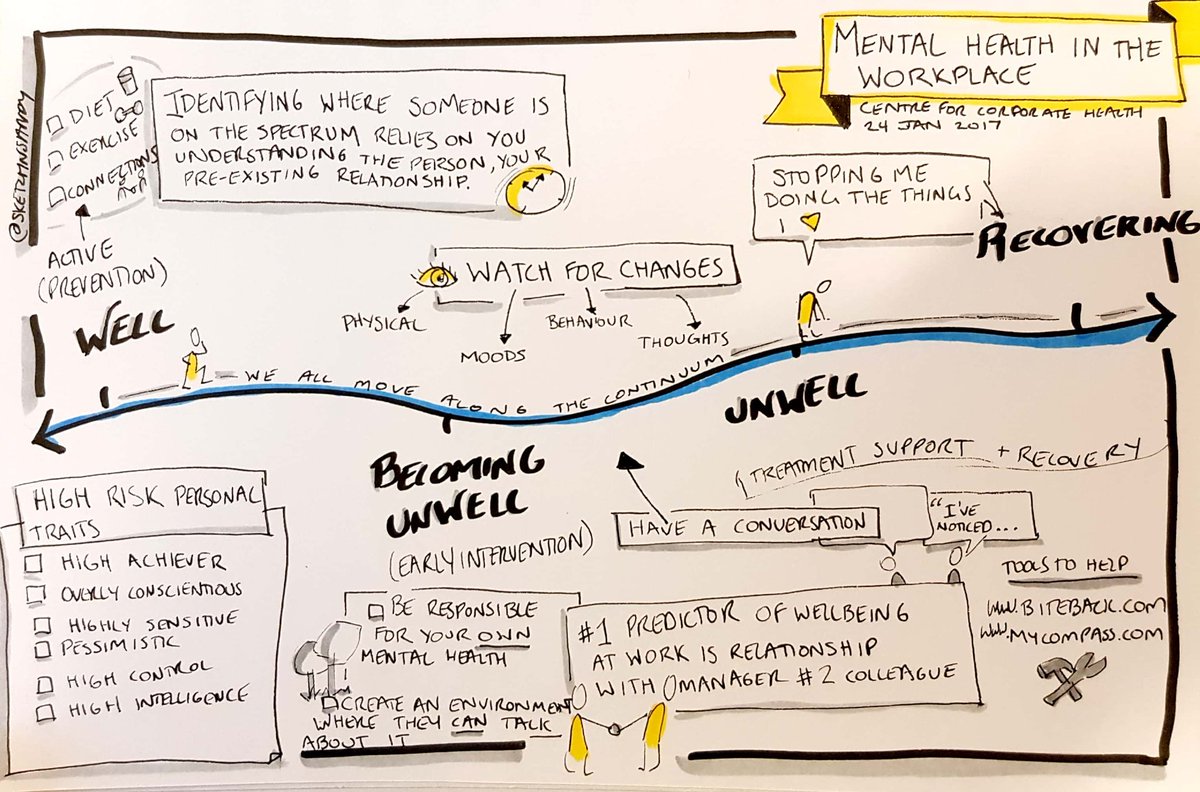 MENTAL HEALTH IN THE
WORKPLACE
CENTRE FOR CORPORATE HEALTH
24 JAN 2017
@SKETCHINGMANDY
DIET
EXERCISE
CONNECTIONS
ACTIVE
(PREVENTION)
IDENTIFYING WHERE SOMEONE IS
ON THE SPECTRUM RELIES ON YOU
UNDERSTANDING THE PERSON, YOUR
PRE-EXISTING RELATIONSHIP.
STOPPING ME
DOING THE THINGS
I
RECOVERING
WATCH FOR CHANGES
PHYSICAL
MOODS
BEHAVIOUR
THOUGHTS
WELL
WE ALL MOVE ALONG THE CONTINUUM
UNWELL
BECOMING
UNWELL
(EARLY INTERVENTION)
TREATMENT SUPPORT + RECOVERY
HAVE A CONVERSATION
"I'VE
NOTICED...
HIGH RISK PERSONAL
TRAITS
HIGH ACHIEVER
OVERLY CONSCIENTIOUS
HIGHLY SENSITIVE
PESSIMISTIC
HIGH CONTROL
HIGH INTELLIGENCE
BE RESPONSIBLE
FOR YOUR OWN
MENTAL HEALTH
CREATE AN ENVIRONMENT
WHERE THEY CAN TALK
ABOUT IT
#1 PREDICTOR OF WELLBEING
AT WORK IS RELATIONSHIP
WITH MANAGER #2 COLLEAGUE
TOOLS TO HELP
www.BITEBACK.COM
www.MYCOMPASS.COM